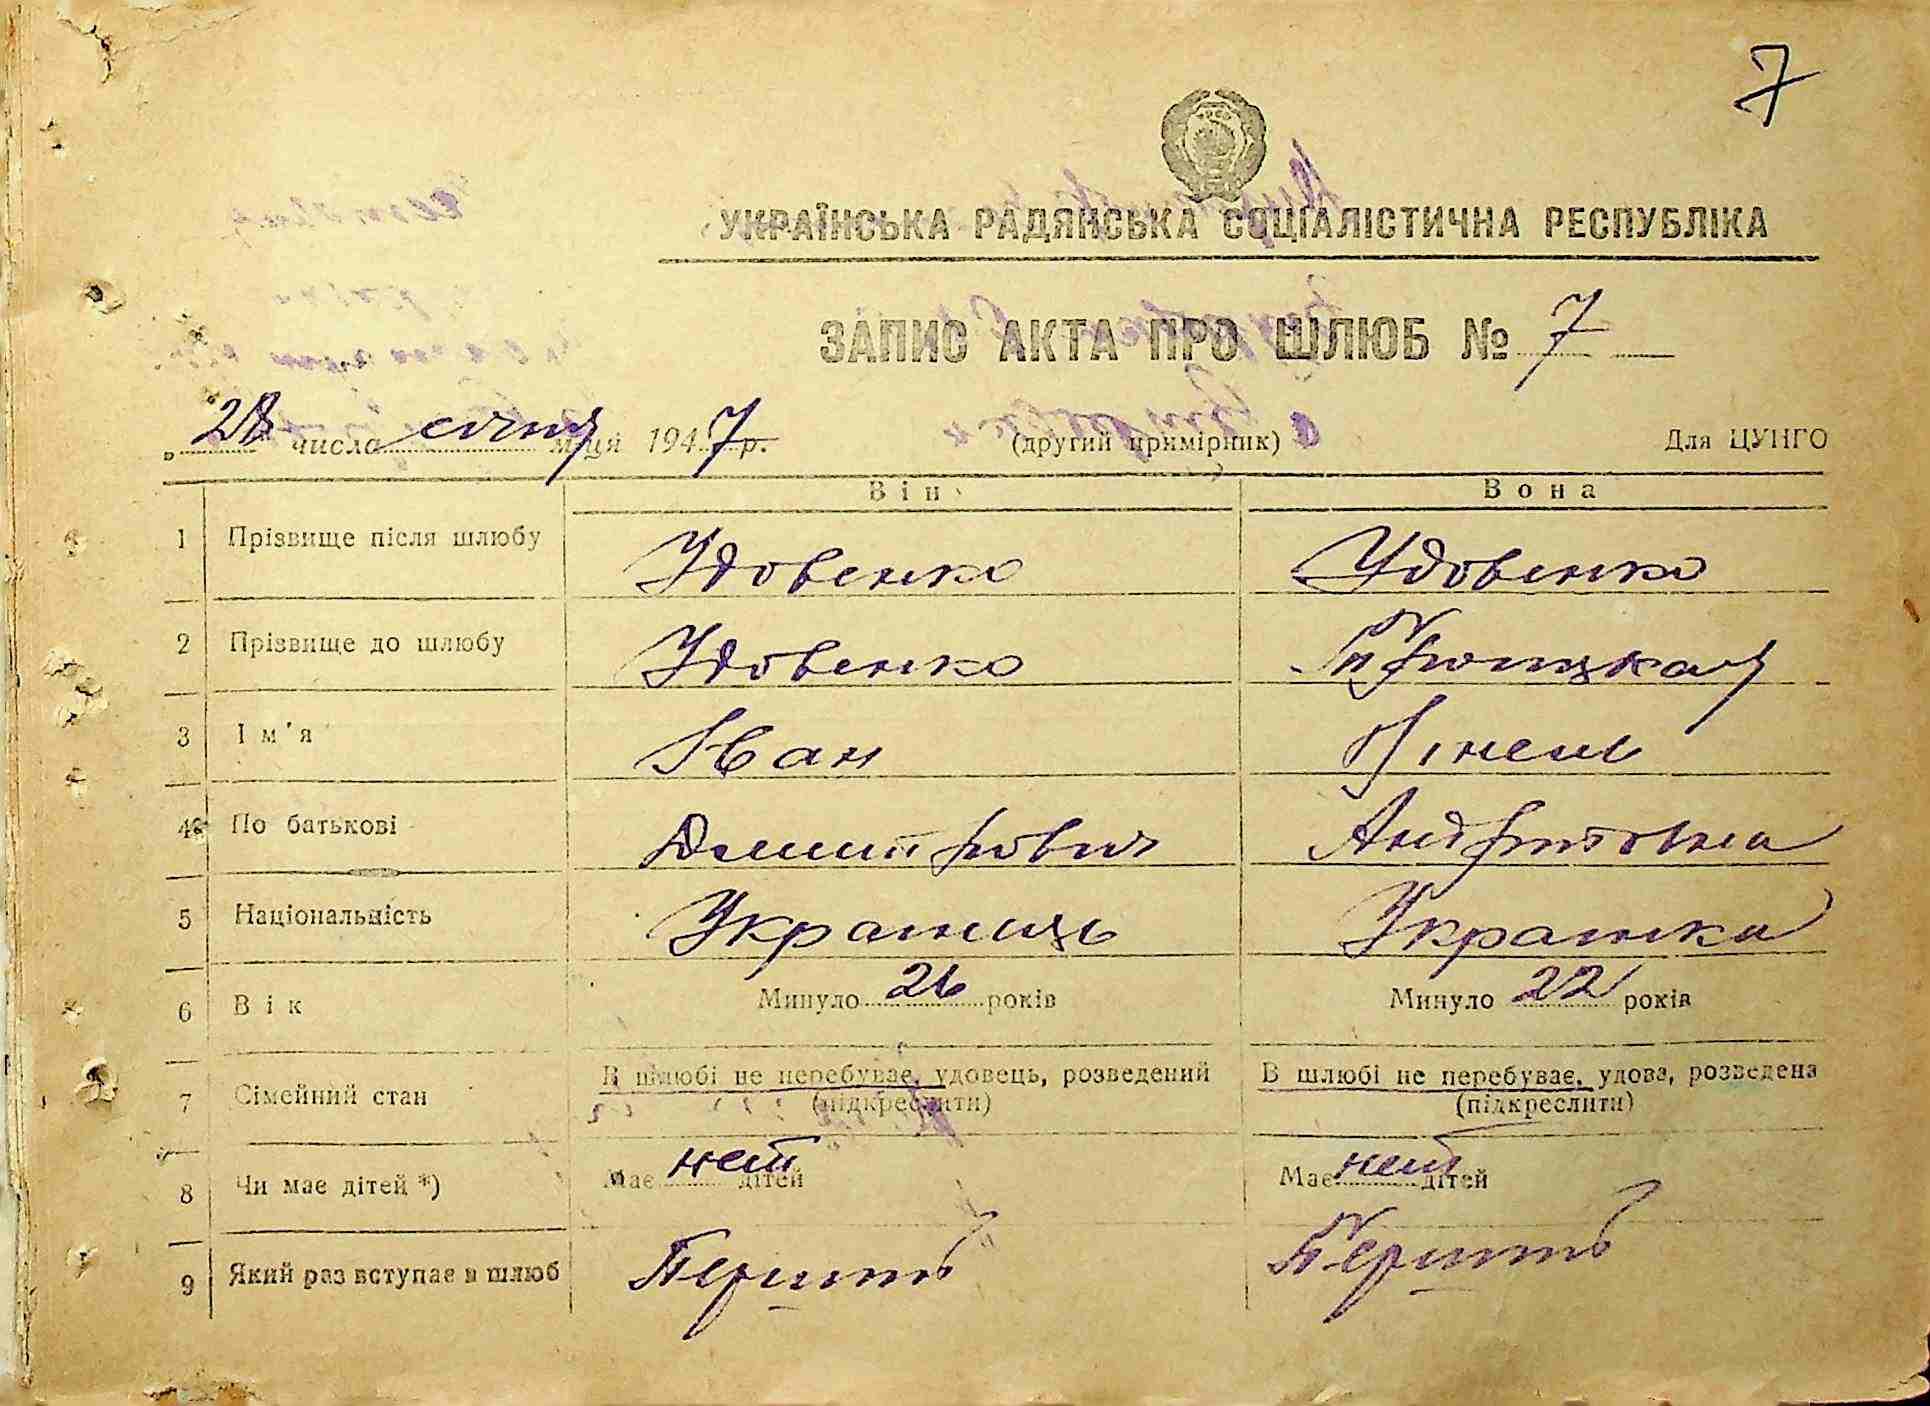 7
УКРАЇНСЬКА РАДЯНСЬКА СОЦІАЛІСТИЧНА РЕСПУБЛІКА
ЗАПИС АКТА ПРО ШЛЮБ № 7
„28" числа січня м-ця 1947 р. (другий примірник) Для ЦУНГО
Він Вона
1 Прізвище після шлюбу Удовенко Удовенко
2 Прізвище до шлюбу Удовенко
3 Ім'я Іван Нінель
4 По батькові Дмитрович Андріївна
5 Національність Украинець Украинка
6 Вік Минуло 26 років Минуло 22 років
7 Сімейний стан В шлюбі не перебуває, удовець, розведений В шлюбі не перебуває, удова, розведена
(підкреслити) (підкреслити)
8 Чи має дітей *) Має нет дітей Має нет дітей
9 Який раз вступає в шлюб